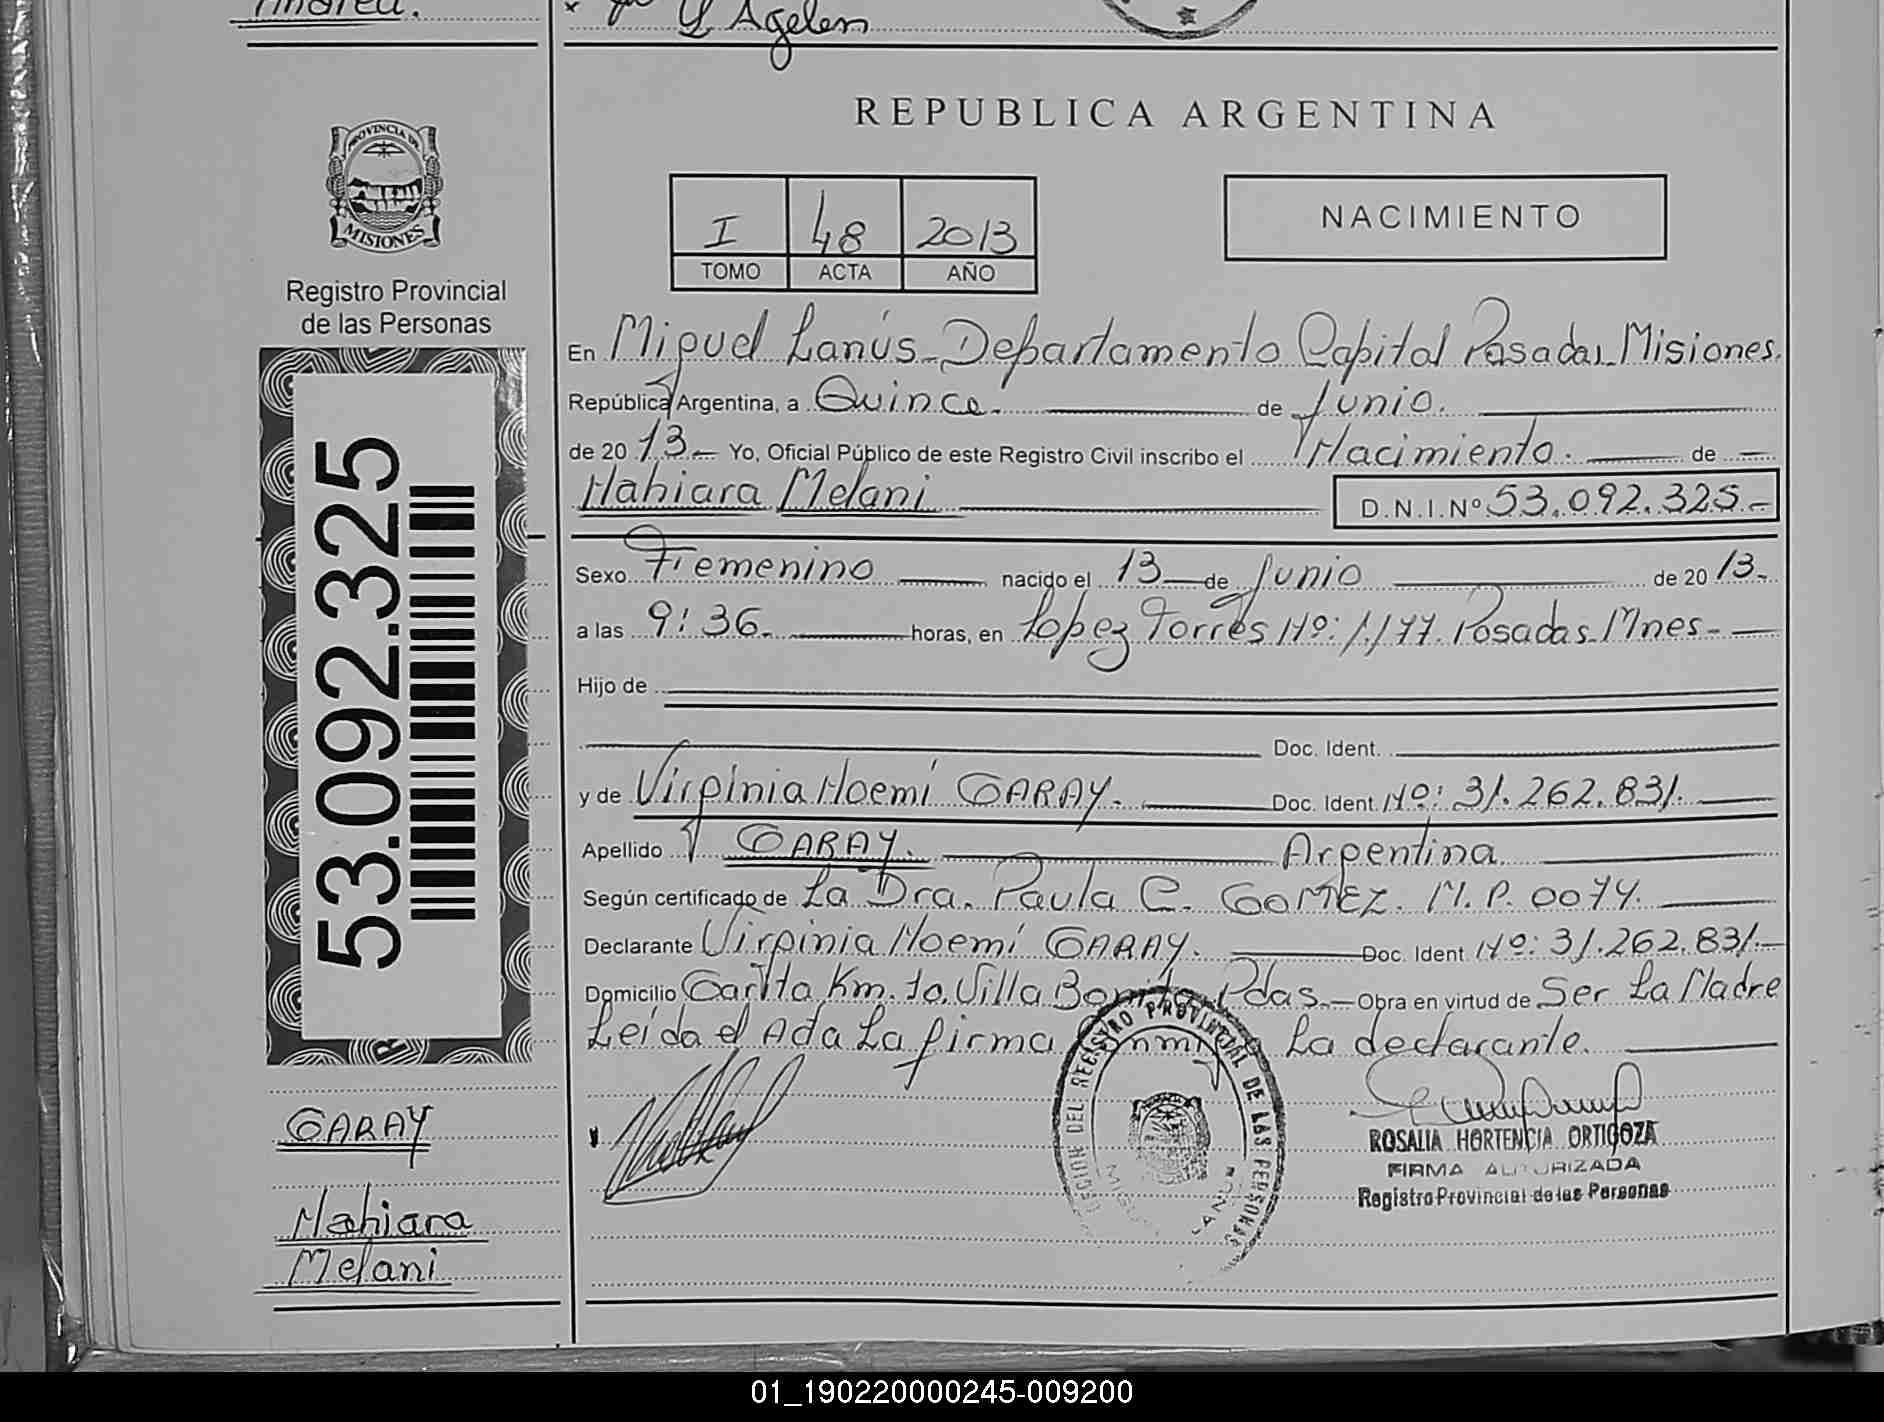 Andrea.
Y Agelen
REPUBLICA ARGENTINA
PROVINCIA DE
MISIONES
Registro Provincial
de las Personas
I 48 2013
TOMO ACTA AÑO
NACIMIENTO
En Miguel Lanús - Departamento Capital Posadas - Misiones.
República Argentina, a Quince. de Junio.
de 20 13.- Yo, Oficial Público de este Registro Civil inscribo el Nacimiento. de
Nahiara Melani D.N.I.Nº 53.092.325.-
Sexo Femenino nacido el 13 de Junio de 20 13.-
a las 9:36. horas, en Lopez Torres Nº: 1.177. Posadas - Mnes -
Hijo de
Doc. Ident.
y de Virginia Noemí GARAY. Doc. Ident. Nº: 31.262.831.
Apellido GARAY. Argentina
Según certificado de La Dra. Paula C. GOMEZ. M.P. 0074.
Declarante Virginia Noemí GARAY. Doc. Ident. Nº: 31.262.831.-
Domicilio Garita Km. 10. Villa Bonita Pdas. - Obra en virtud de Ser La Madre
Leída el Acta La firma conmigo La declarante.
53.092.325
GARAY
Nahiara
Melani
DEL REGISTRO PROVINCIAL DE LAS PERSONAS
LANUS
ROSALIA HORTENCIA ORTIGOZA
FIRMA AUTORIZADA
Registro Provincial de las Personas
01_190220000245-009200